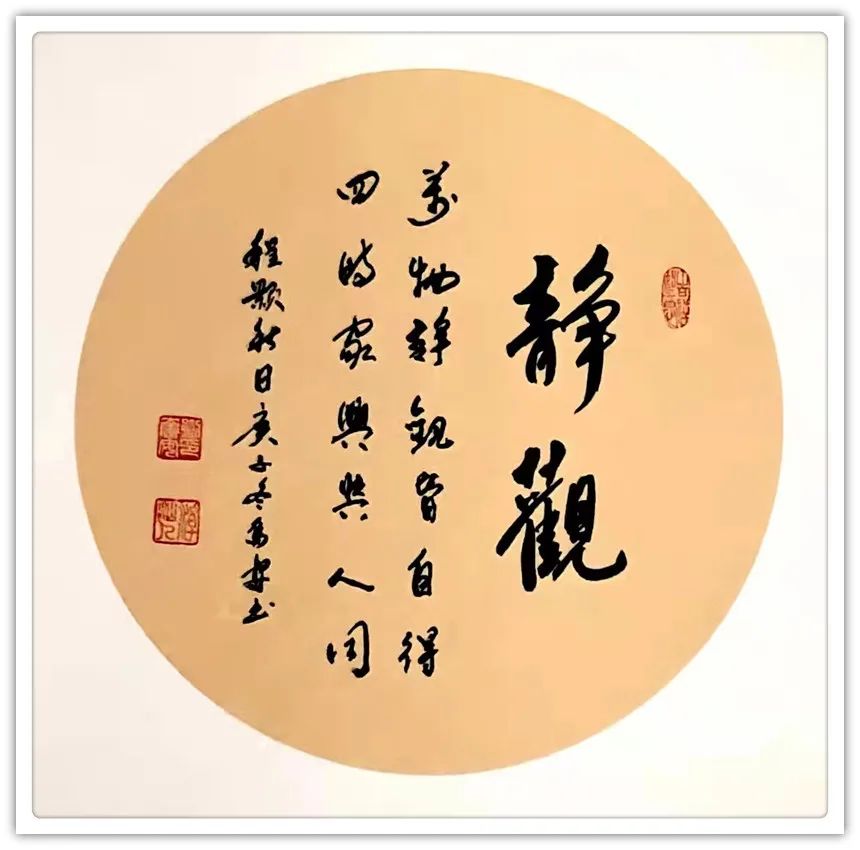 静觀
萬物静觀皆自得
四時家興與人同
程顥秋日庚子冬書